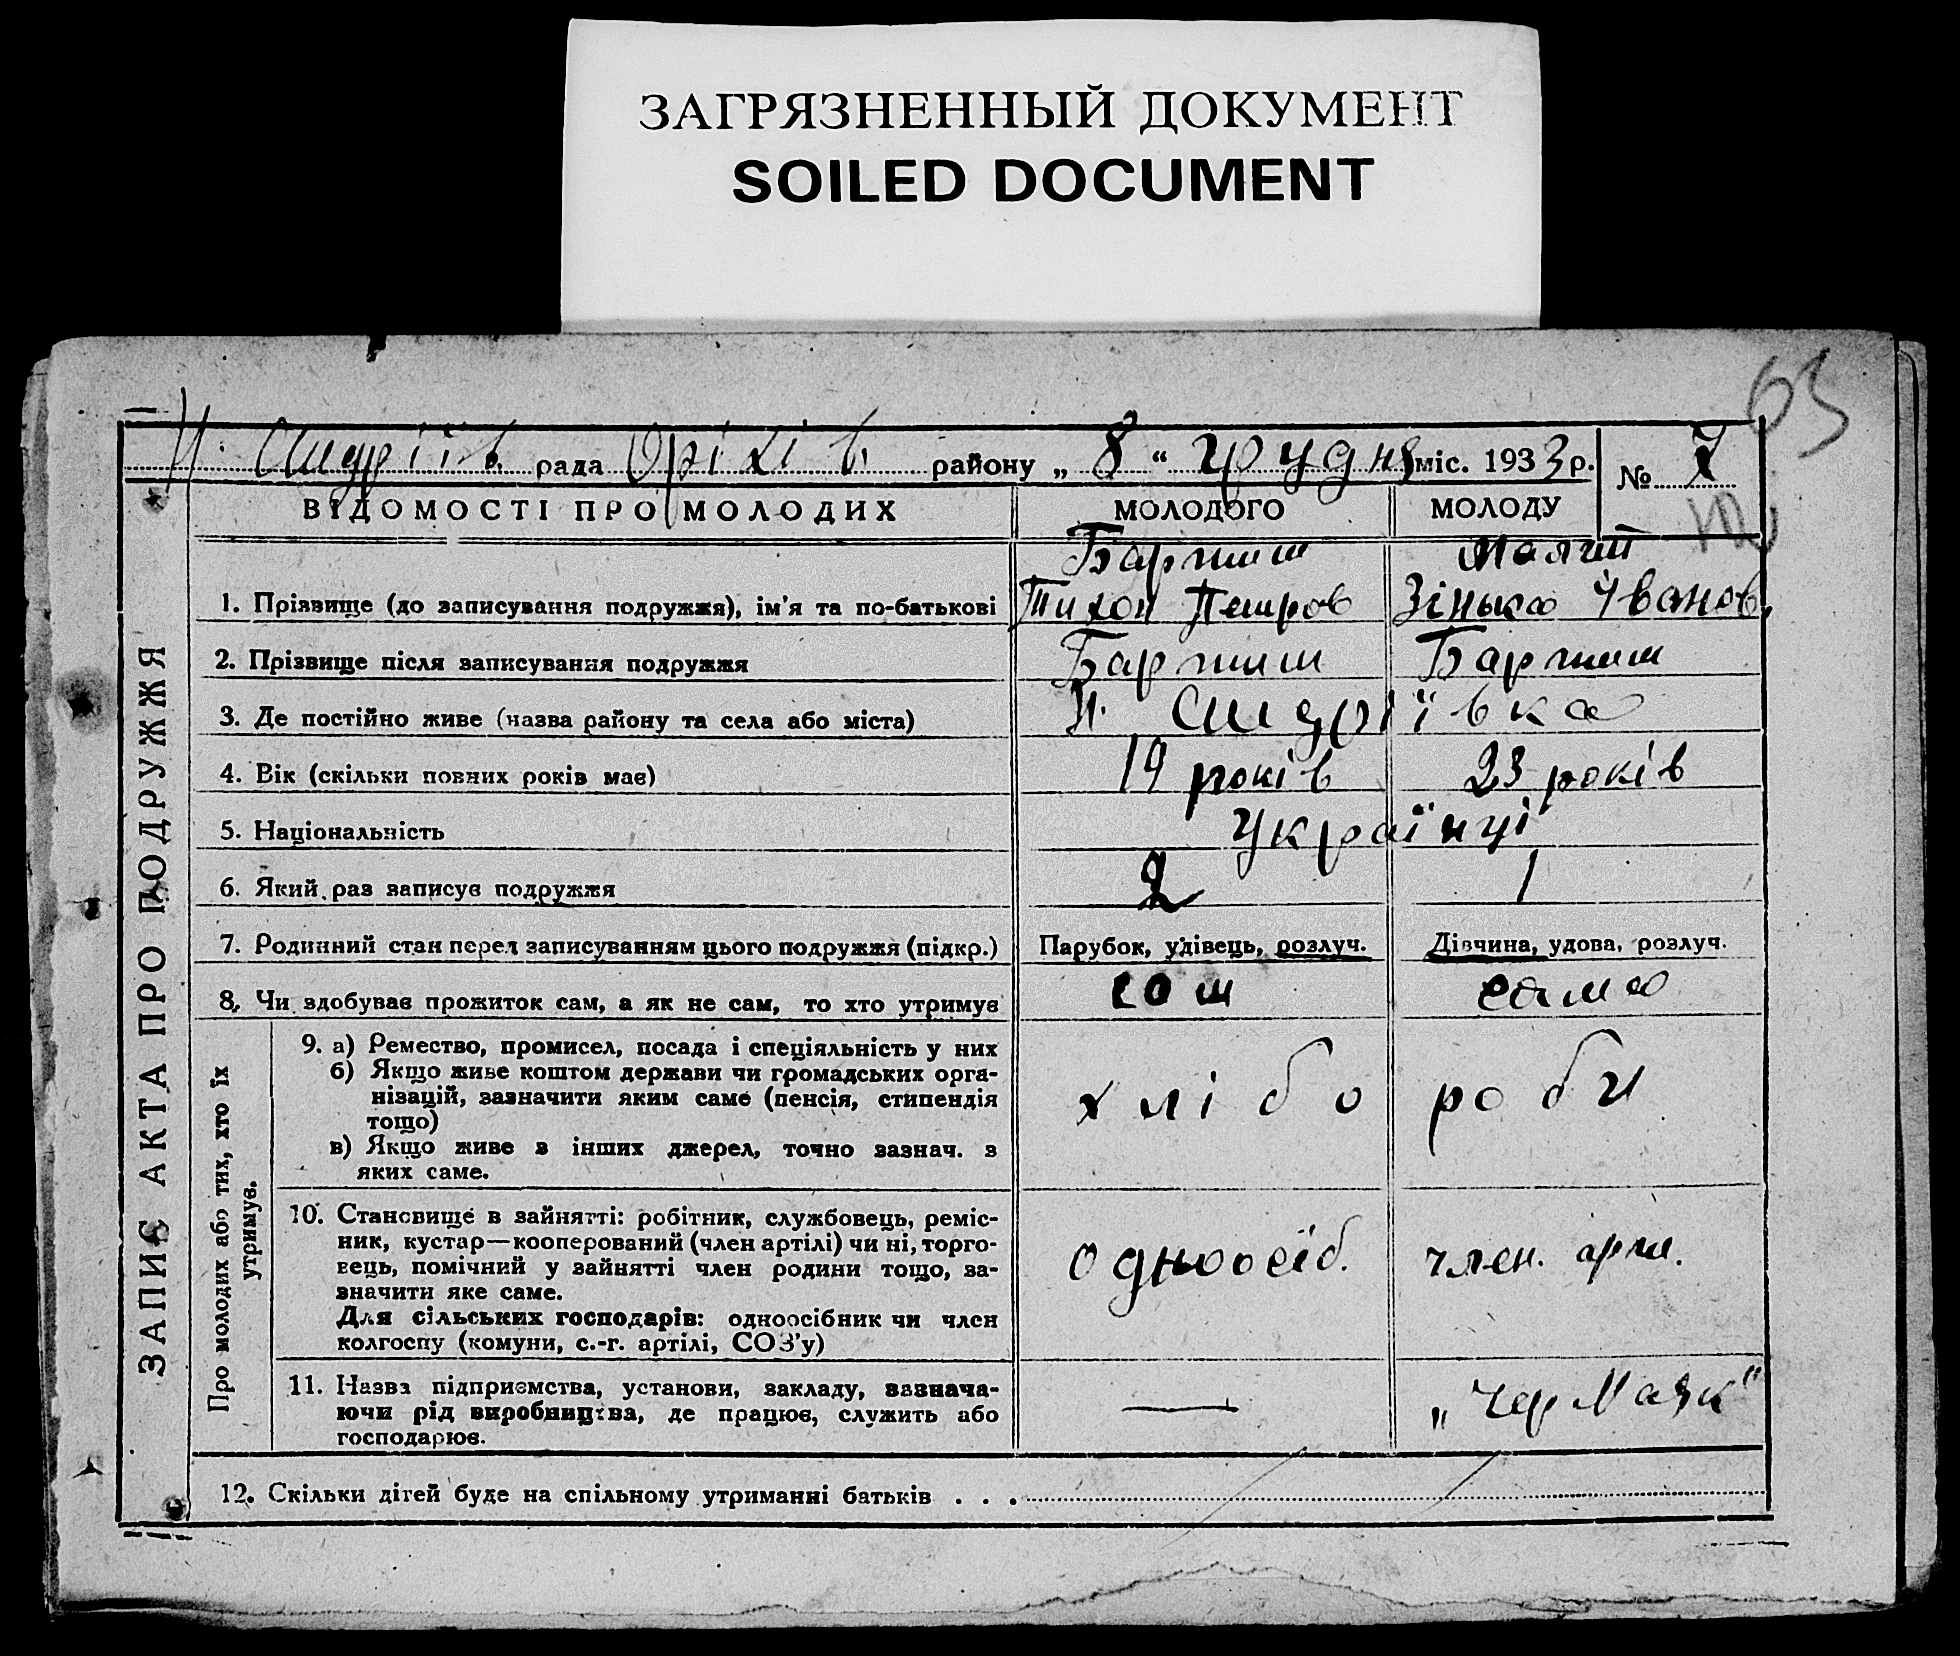 ЗАГРЯЗНЕННЫЙ ДОКУМЕНТ
SOILED DOCUMENT
63
рада Оріхів. району „ 8 “ грудня міс. 1933 р.
№ 7
ВІДОМОСТІ ПРО МОЛОДИХ МОЛОДОГО МОЛОДУ
ЗАПИС АКТА ПРО ПОДРУЖЖЯ
1. Прізвище (до записування подружжя), ім’я та по-батькові Тихон Петров Зінька Іванов.
2. Прізвище після записування подружжя
3. Де постійно живе (назва району та села або міста)
4. Вік (скільки повних років має) 19 років 23 років
5. Національність Українці
6. Який раз записує подружжя 2 1
7. Родинний стан перед записуванням цього подружжя (підкр.) Парубок, удівець, розлуч. Дівчина, удова, розлуч.
8. Чи здобував прожиток сам, а як не сам, то хто утримує сам сама
Про молодих або тих, хто їх
утримує.
9. а) Ремество, промисел, посада і спеціяльність у них
б) Якщо живе коштом держави чи громадських орга-
нізацій, зазначити яким саме (пенсія, стипендія
тощо)
в) Якщо живе з інших джерел, точно зазнач. з
яких саме.
хлібороби
10. Становище в зайнятті: робітник, службовець, реміс-
ник, кустар—кооперований (член артілі) чи ні, торго-
вець, помічний у зайнятті член родини тощо, за-
значити яке саме.
Для сільських господарів: одноосібник чи член
колгоспу (комуни, с.-г. артілі, СОЗ’у)
одноосіб. член. арт.
11. Назва підприємства, установи, закладу, зазнача-
ючи рід виробництва, де працює, служить або
господарює.
— „Чер Маяк“
12. Скільки дітей буде на спільному утриманні батьків . . .